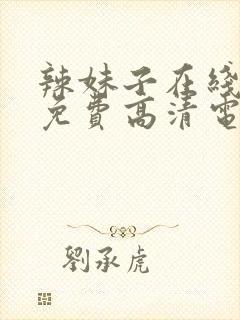 辣妹子在綫
免費高清電
劉承虎